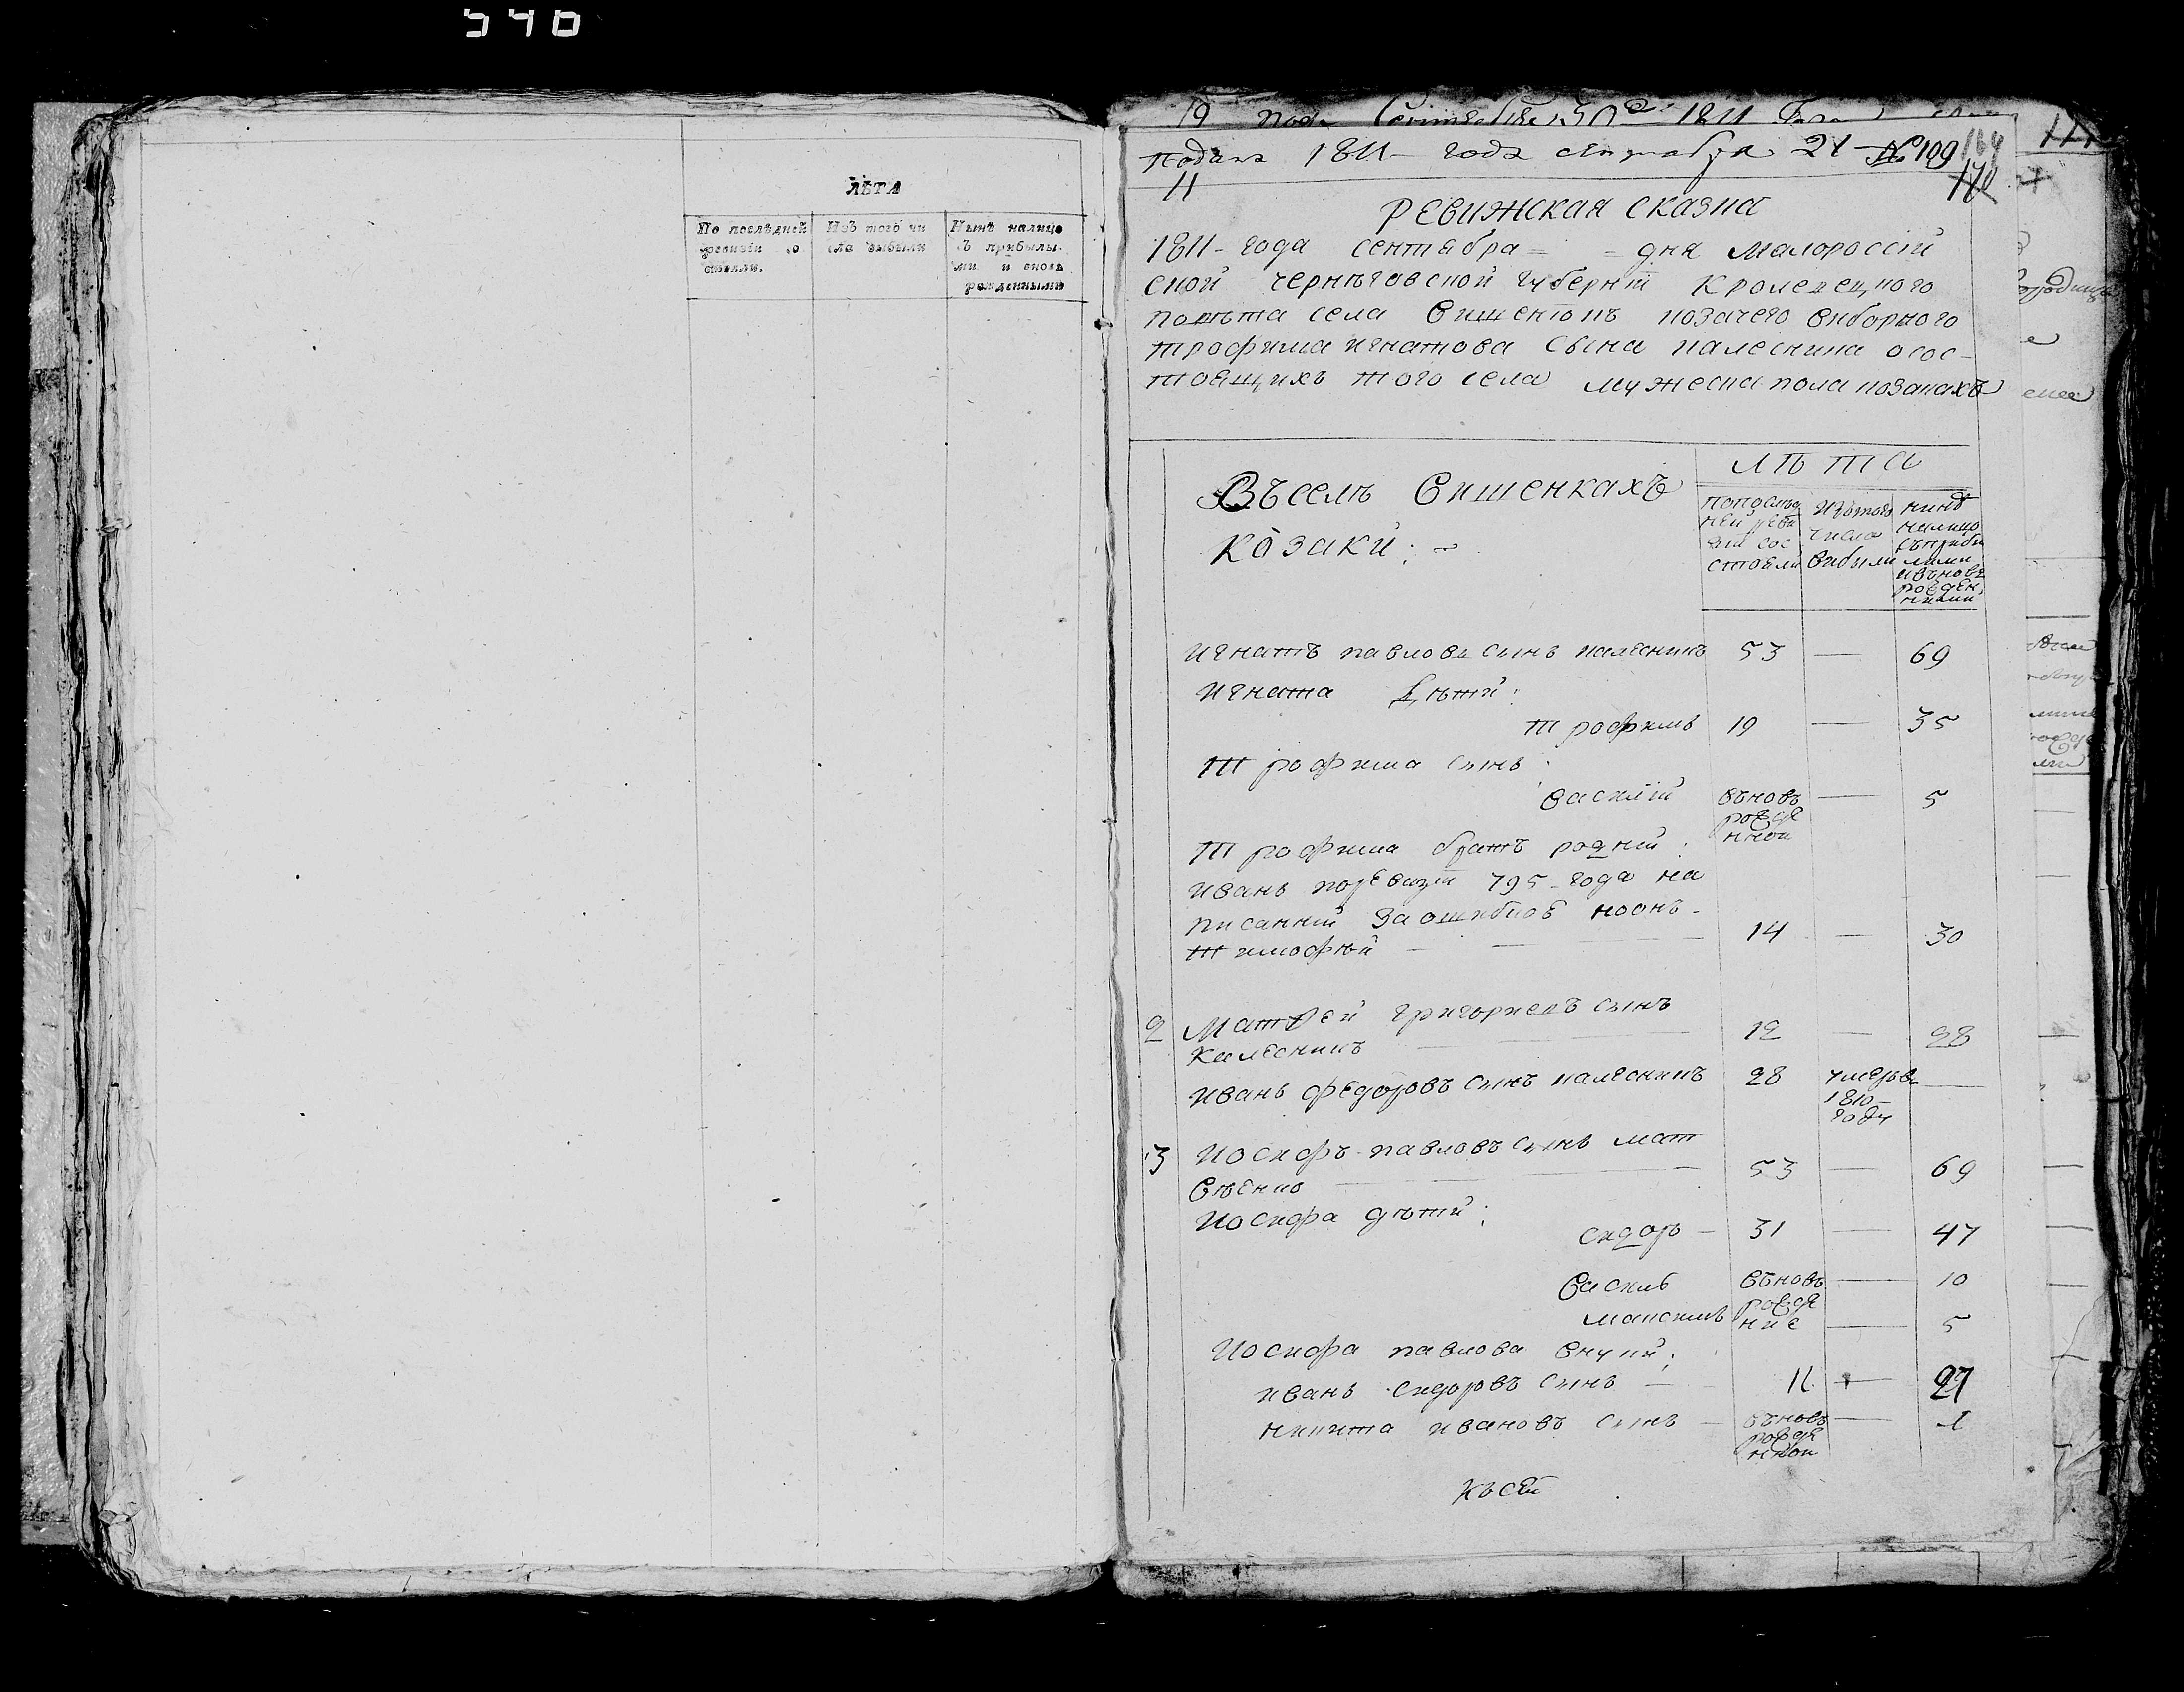 540
ЛѢТА
По послѣдней ревизіи состояли.
Изъ того чи сла выбыли
Нынѣ налицо съ прибылы ми и вновь рожденными
19 1811
подана 1811 года сентября 21 № 109 164
11 170
РЕВИЖСКАЯ СКАЗКА
1811 года сентября = = дня Малороссій
ской черниговской губерніи Кролевецкого
повѣта села Вишенокъ козачего виборного
трофима игнатова сына калесника осос-
тоящихъ того села мужеска пола козакахъ
Въ селѣ Вишенкахъ
Козаки:
ЛѢТА
попослѣд ней ревизіи состояли
изътого числа вибыли
нинѣ налицо съприбилими ивъновъ рожденними
игнатъ павловъ сынъ калесникъ 53 — 69
игната дѣти:
трофимъ 19 — 35
трофима сынъ:
василій вѣновъ рожденной — 5
трофима братъ родній:
иванъ поревизіи 795 года на
писанній заошибкоѣ коонъ
тимофѣй — 14 — 30
2 Матфей григориевъ сынъ
Калесникъ — 12 — 28
иванъ федоровъ сынъ калесникъ 28 умеръвъ 1810 году —
3 Иосифъ павловъ сынъ мат
вѣенко — 53 — 69
Иосифа дѣти:
сидоръ — 31 — 47
василь вѣновъ — 10
максимъ рожденние — 5
Иосифа павлова внуки:
иванъ сидоровъ сынъ — 11 — 27
никита ивановъ сынъ — вѣновъ рожденной — 1
къ сей